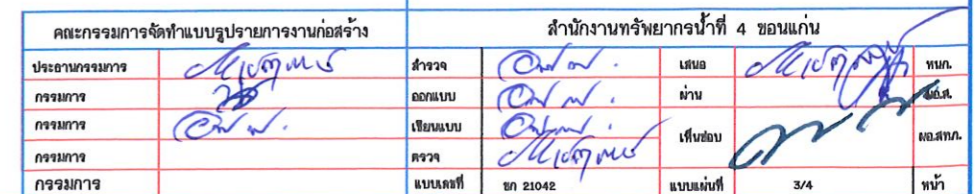 คณะกรรมการจัดทำแบบรูปรายการงานก่อสร้าง สำนักงานทรัพยากรน้ำที่ 4 ขอนแก่น
ประธานกรรมการ สำรวจ เสนอ ทนก.
กรรมการ ออกแบบ ผ่าน ผอ.ส.
กรรมการ เขียนแบบ เห็นชอบ ผอ.สทภ.
กรรมการ ตรวจ
กรรมการ แบบเลขที่ ขก 21042 แบบแผ่นที่ 3/4 หน้า